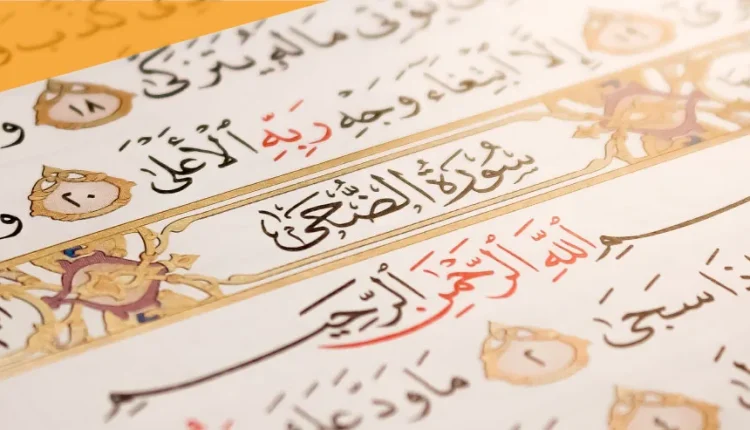 يُؤْتِى مَالَهُ يَتَزَكَّىٰ ١٨ و
١٩ إِلَّا ٱبْتِغَاءَ وَجْهِ رَبِّهِ ٱلْأَعْلَىٰ ٢٠ و
سُورَةُ ٱلضُّحَىٰ
سمِ ٱللَّهِ ٱلرَّحْمَٰنِ ٱلرَّحِيمِ
ذَا سَجَىٰ ٢ مَا وَدَّعَكَ